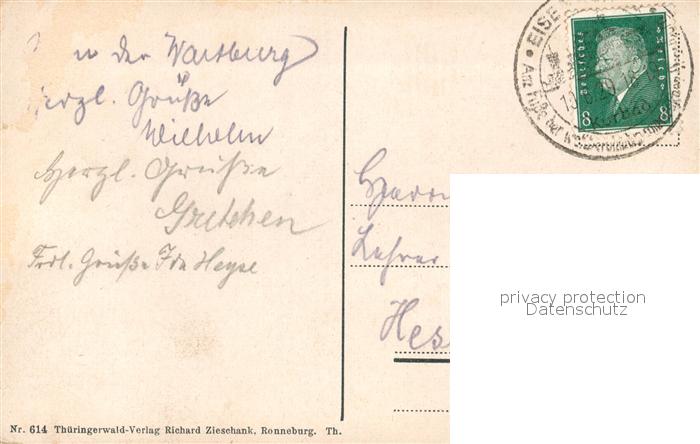 in der Wartburg
Herzl. Grüße
Wilhelm
Herzl. Grüße
Gretchen
Frdl. Grüße Ida Heyse
Nr. 614 Thüringerwald-Verlag Richard Zieschank, Ronneburg. Th.
EISE
Am Fuße der Wartburg
Deutsches Reich
8 8
Herrn
Lehrer
Hes
privacy protection
Datenschutz